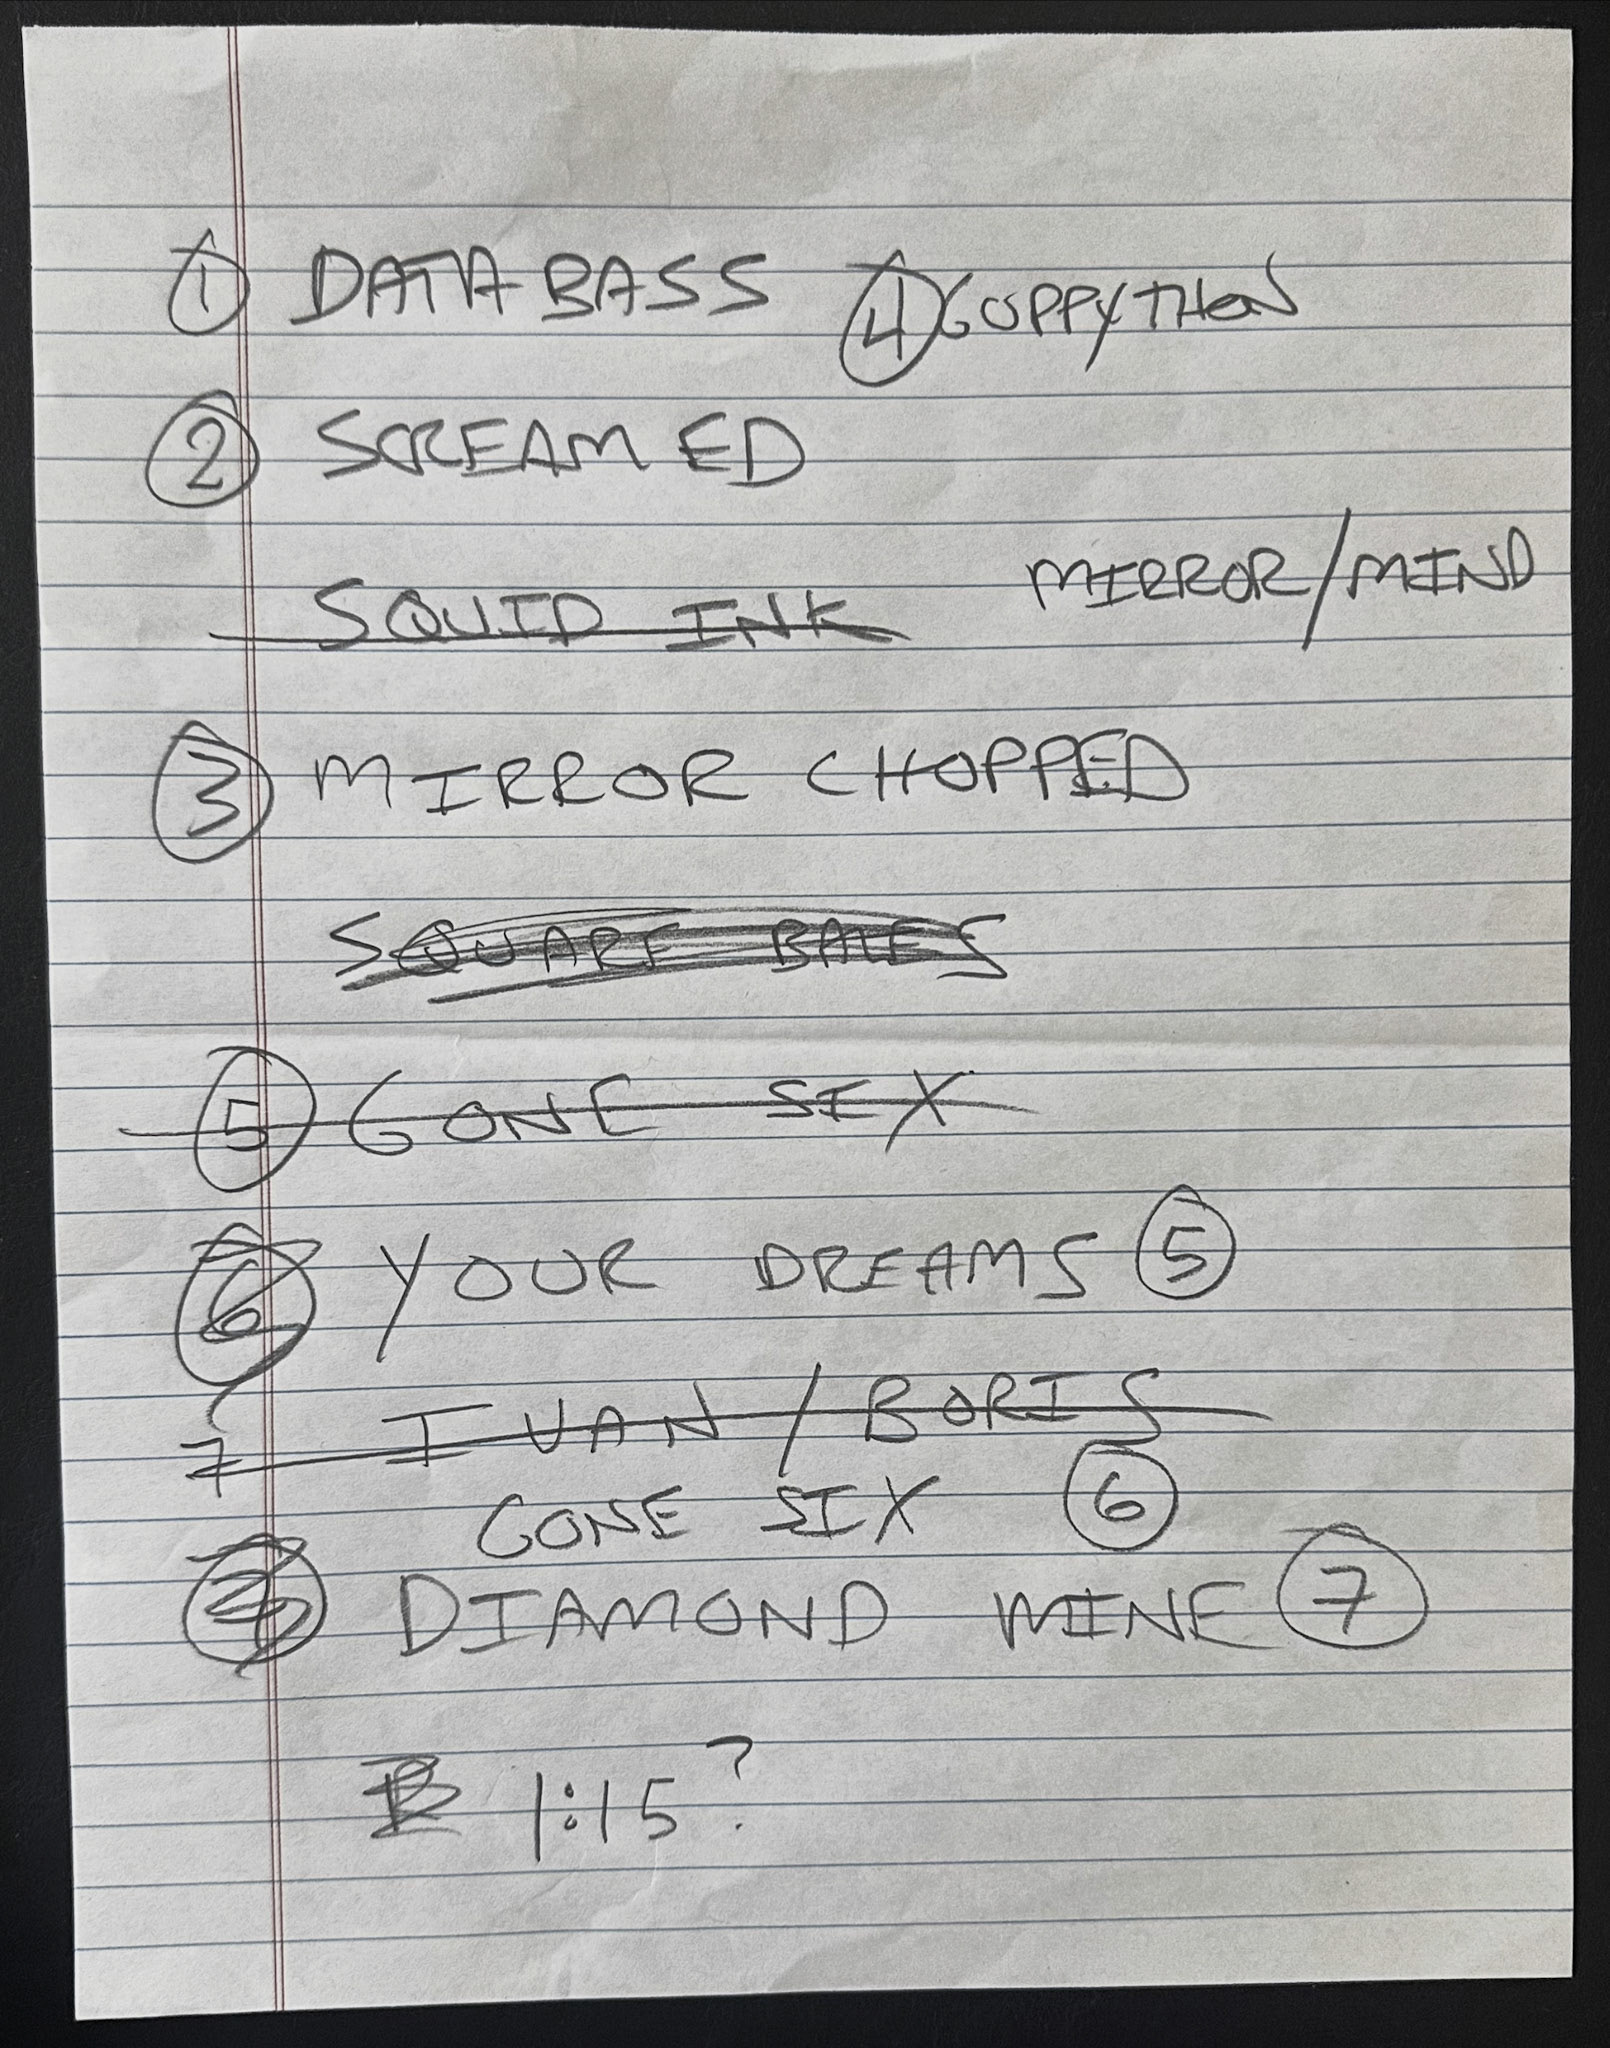 ① DATABASS ④ GUPPYTHON
② SCREAMED
SQUID INK MIRROR/MIND
③ MIRROR CHOPPED
SQUARE BALES
⑤ GONE SIX
⑥ YOUR DREAMS ⑤
7 IVAN / BORIS
GONE SIX ⑥
DIAMOND MINE ⑦
1:15?